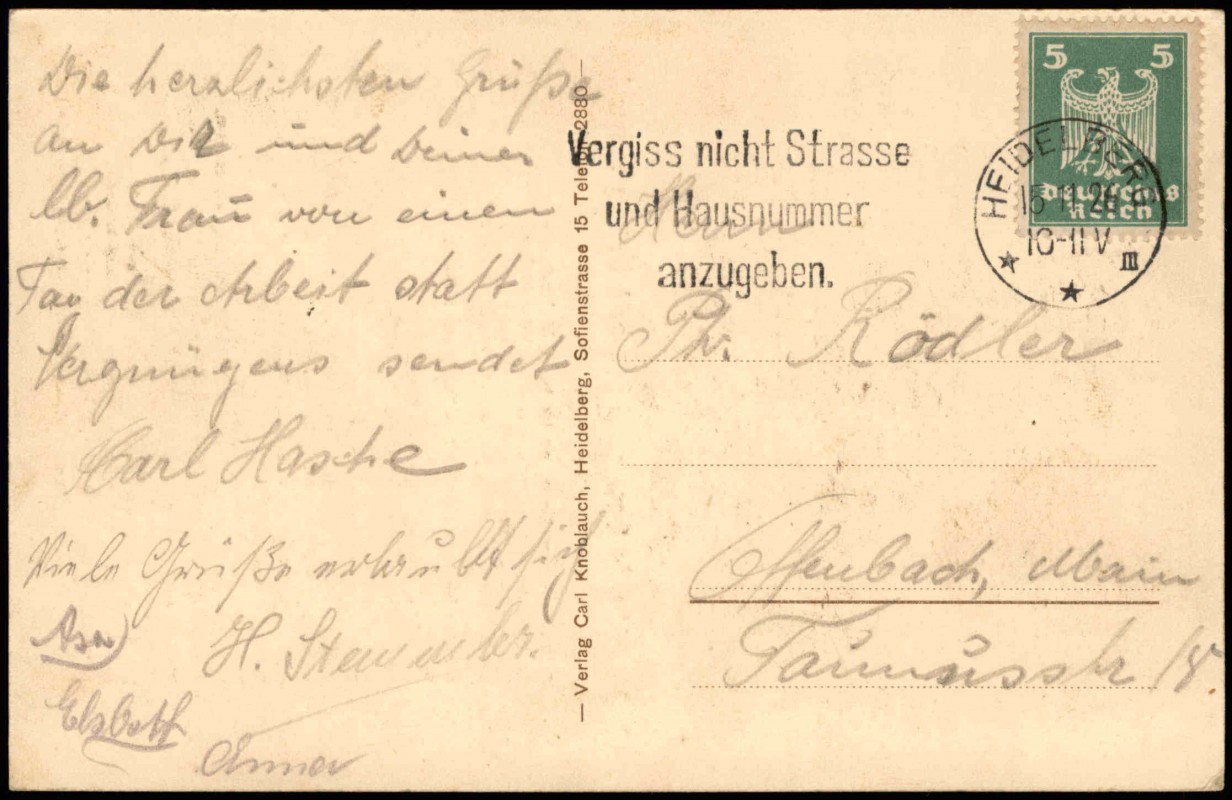 Die herzlichsten Grüße
an Dich und Deiner
lb. Frau von einem
Tag der Arbeit statt
Vergnügens sendet
Carl Hasche
Viele Grüße erlaubt sich
H.
Elsbeth
Anna
— Verlag Carl Knoblauch, Heidelberg, Sofienstrasse 15 Telefon 2880 —
Vergiss nicht Strasse
und Hausnummer
anzugeben.
5 5
Deutsches
Reich
HEIDELBERG
15.11.26
10-11 V
III
Herrn
Ph. Rödler
Offenbach, Main
Taunusstr